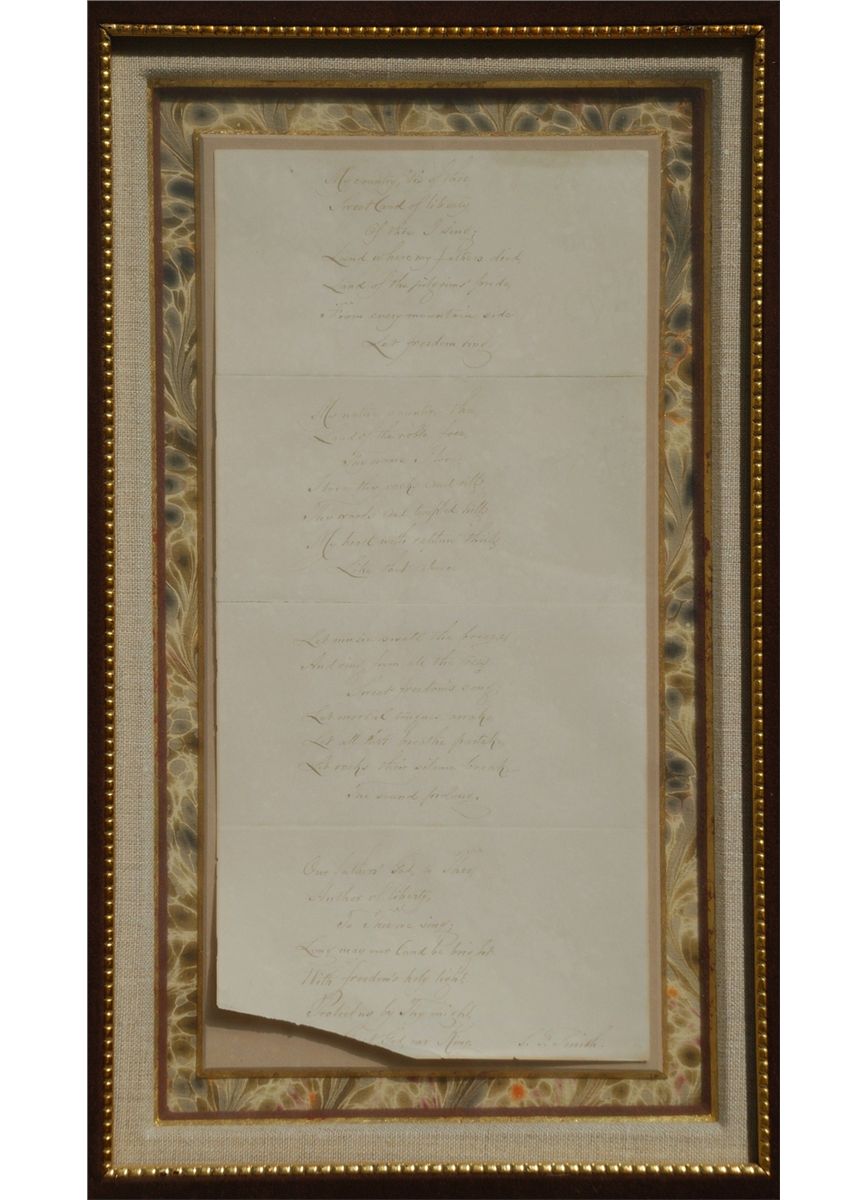 My country, 'tis of thee,
Sweet land of liberty,
Of thee I sing;
Land where my fathers died,
Land of the pilgrims' pride,
From every mountain side
Let freedom ring.
My native country, thee,
Land of the noble free,
Thy name I love;
I love thy rocks and rills,
Thy woods and templed hills,
My heart with rapture thrills,
Like that above.
Let music swell the breeze,
And ring from all the trees
Sweet freedom's song;
Let mortal tongues awake,
Let all that breathe partake,
Let rocks their silence break,
The sound prolong.
Our fathers' God, to Thee,
Author of liberty,
To Thee we sing;
Long may our land be bright
With freedom's holy light,
Protect us by Thy might,
God, our King.
S. F. Smith.